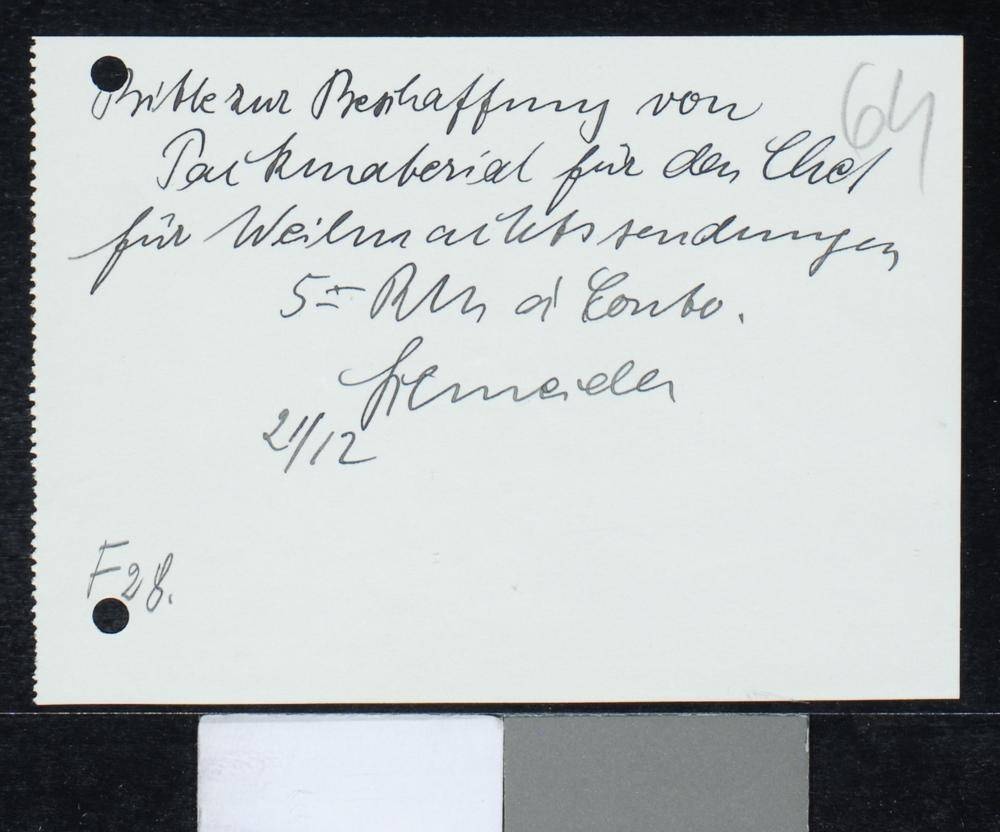 64
Bitte zur Beschaffung von
Packmaterial für den Chef
für Weihnachtssendungen
5.- RM à Conto.
Schneider
21/12
F 28.